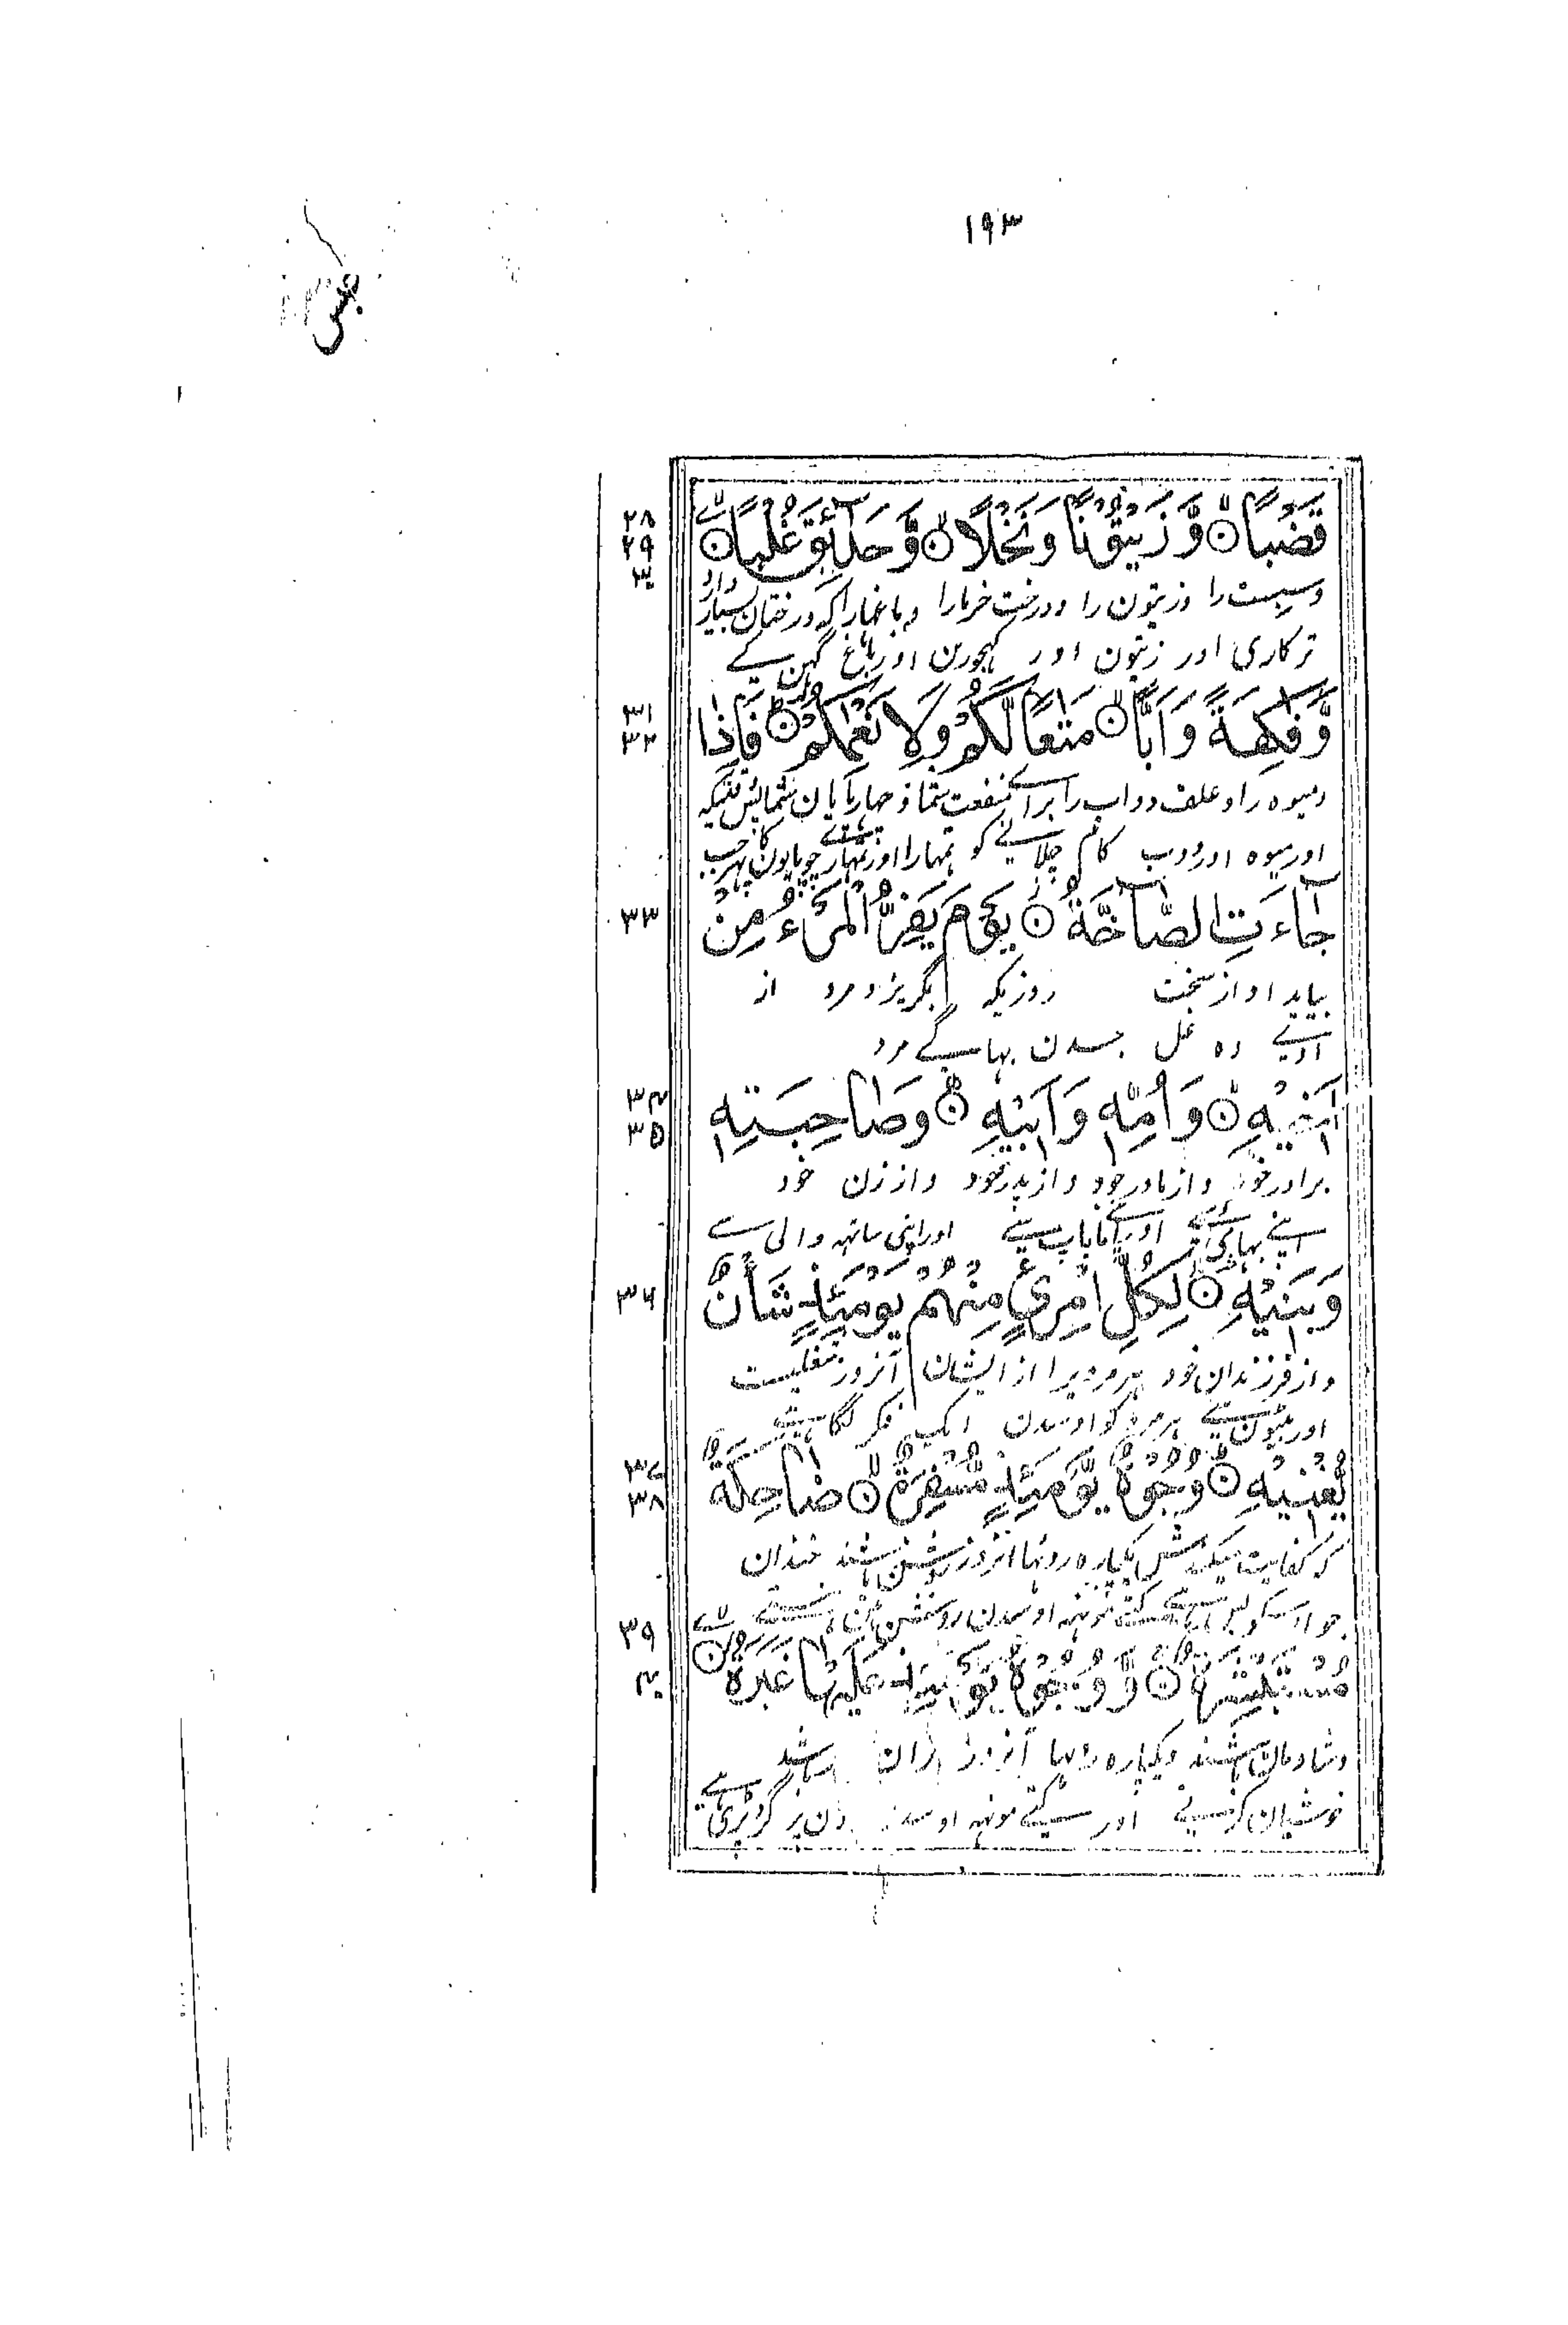 ۱۹۳
عبس
قَضْبًا ۙ وَّزَيْتُوْنًا وَّنَخْلًا ۙ وَّحَدَآئِقَ غُلْبًا ۙ
۲۸
۲۹
۳۰
وسپست را وزیتون را ودرخت خرما را وباغهارا که درختان بسیار دارد
ترکاری اور زیتون اور کهجورین اور باغ گهن کے
وَّفَاكِهَةً وَّاَبًّا ۙ مَّتَاعًا لَّكُمْ وَلِاَنْعَامِكُمْ ؕ فَاِذَا
۳۱
۳۲
ومیوه را وعلف دواب را برائے منفعت شما وچهارپایان شما پس وقتیکه
اور میوه اور دوب کام چلانے کو تمهارا اور تمهارے چوپایون کا پهر جب
جَآءَتِ الصَّآخَّةُ ۚ يَوْمَ يَفِرُّ الْمَرْءُ مِنْ
۳۳
بیاید اواز سخت روزیکه بگریزد مرد از
آوے وه غل جسدن بهاگے مرد
اَخِيْهِ ۙ وَاُمِّهٖ وَاَبِيْهِ ۙ وَصَاحِبَتِهٖ
۳۴
۳۵
برادر خود واز مادر خود واز پدر خود واز زن خود
اپنے بهائی سے اور اپنے ماباپ سے اور اپنی ساتهہ والی سے
وَبَنِيْهِ ؕ لِكُلِّ امْرِئٍ مِّنْهُمْ يَوْمَئِذٍ شَاْنٌ
۳۶
واز فرزندان خود هر مردیرا از ایشان آنروز شغلیست
اور بیٹون سے هر مرد کو اوسدن ایک فکر لگا هے
يُّغْنِيْهِ ؕ وُجُوْهٌ يَّوْمَئِذٍ مُّسْفِرَةٌ ۙ ضَاحِكَةٌ
۳۷
۳۸
که کفایت میکندش یکپاره رویها انروز روشن باشند خندان
جو اسکو بس هے کتے مونهہ اوسدن روشن هین هنستے
مُّسْتَبْشِرَةٌ ۚ وَوُجُوْهٌ يَّوْمَئِذٍ عَلَيْهَا غَبَرَةٌ ۙ
۳۹
۴۰
وشادمان باشند ویکپاره رویها آنروز باشد
خوشیان کرتے اور کتے مونهہ اوسدن اون پر گرد پڑی هے